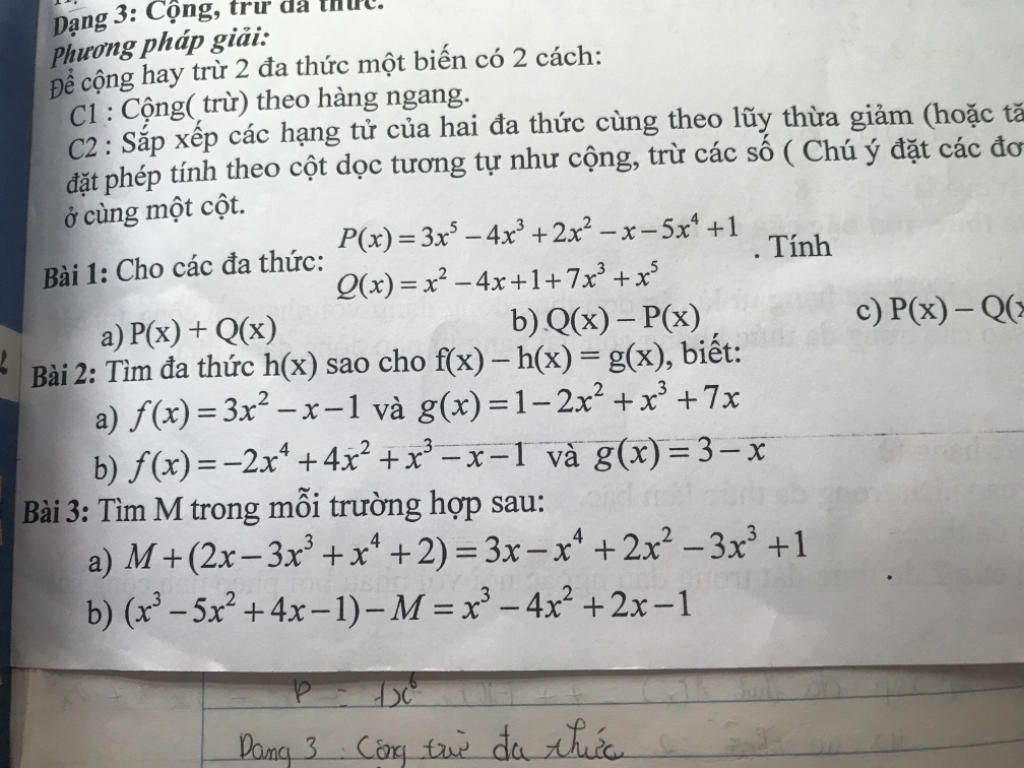 Dạng 3: Cộng, trừ đa thức.
Phương pháp giải:
Để cộng hay trừ 2 đa thức một biến có 2 cách:
C1 : Cộng( trừ) theo hàng ngang.
C2 : Sắp xếp các hạng tử của hai đa thức cùng theo lũy thừa giảm (hoặc tă
đặt phép tính theo cột dọc tương tự như cộng, trừ các số ( Chú ý đặt các đơ
ở cùng một cột.
Bài 1: Cho các đa thức: P(x) = 3x⁵ − 4x³ + 2x² − x − 5x⁴ + 1 . Tính
Q(x) = x² − 4x + 1 + 7x³ + x⁵
a) P(x) + Q(x) b) Q(x) – P(x) c) P(x) – Q(x
Bài 2: Tìm đa thức h(x) sao cho f(x) – h(x) = g(x), biết:
a) f(x) = 3x² − x − 1 và g(x) = 1 − 2x² + x³ + 7x
b) f(x) = −2x⁴ + 4x² + x³ − x − 1 và g(x) = 3 − x
Bài 3: Tìm M trong mỗi trường hợp sau:
a) M + (2x − 3x³ + x⁴ + 2) = 3x − x⁴ + 2x² − 3x³ + 1
b) (x³ − 5x² + 4x − 1) − M = x³ − 4x² + 2x − 1
Dạng 3 : Cộng trừ đa thức